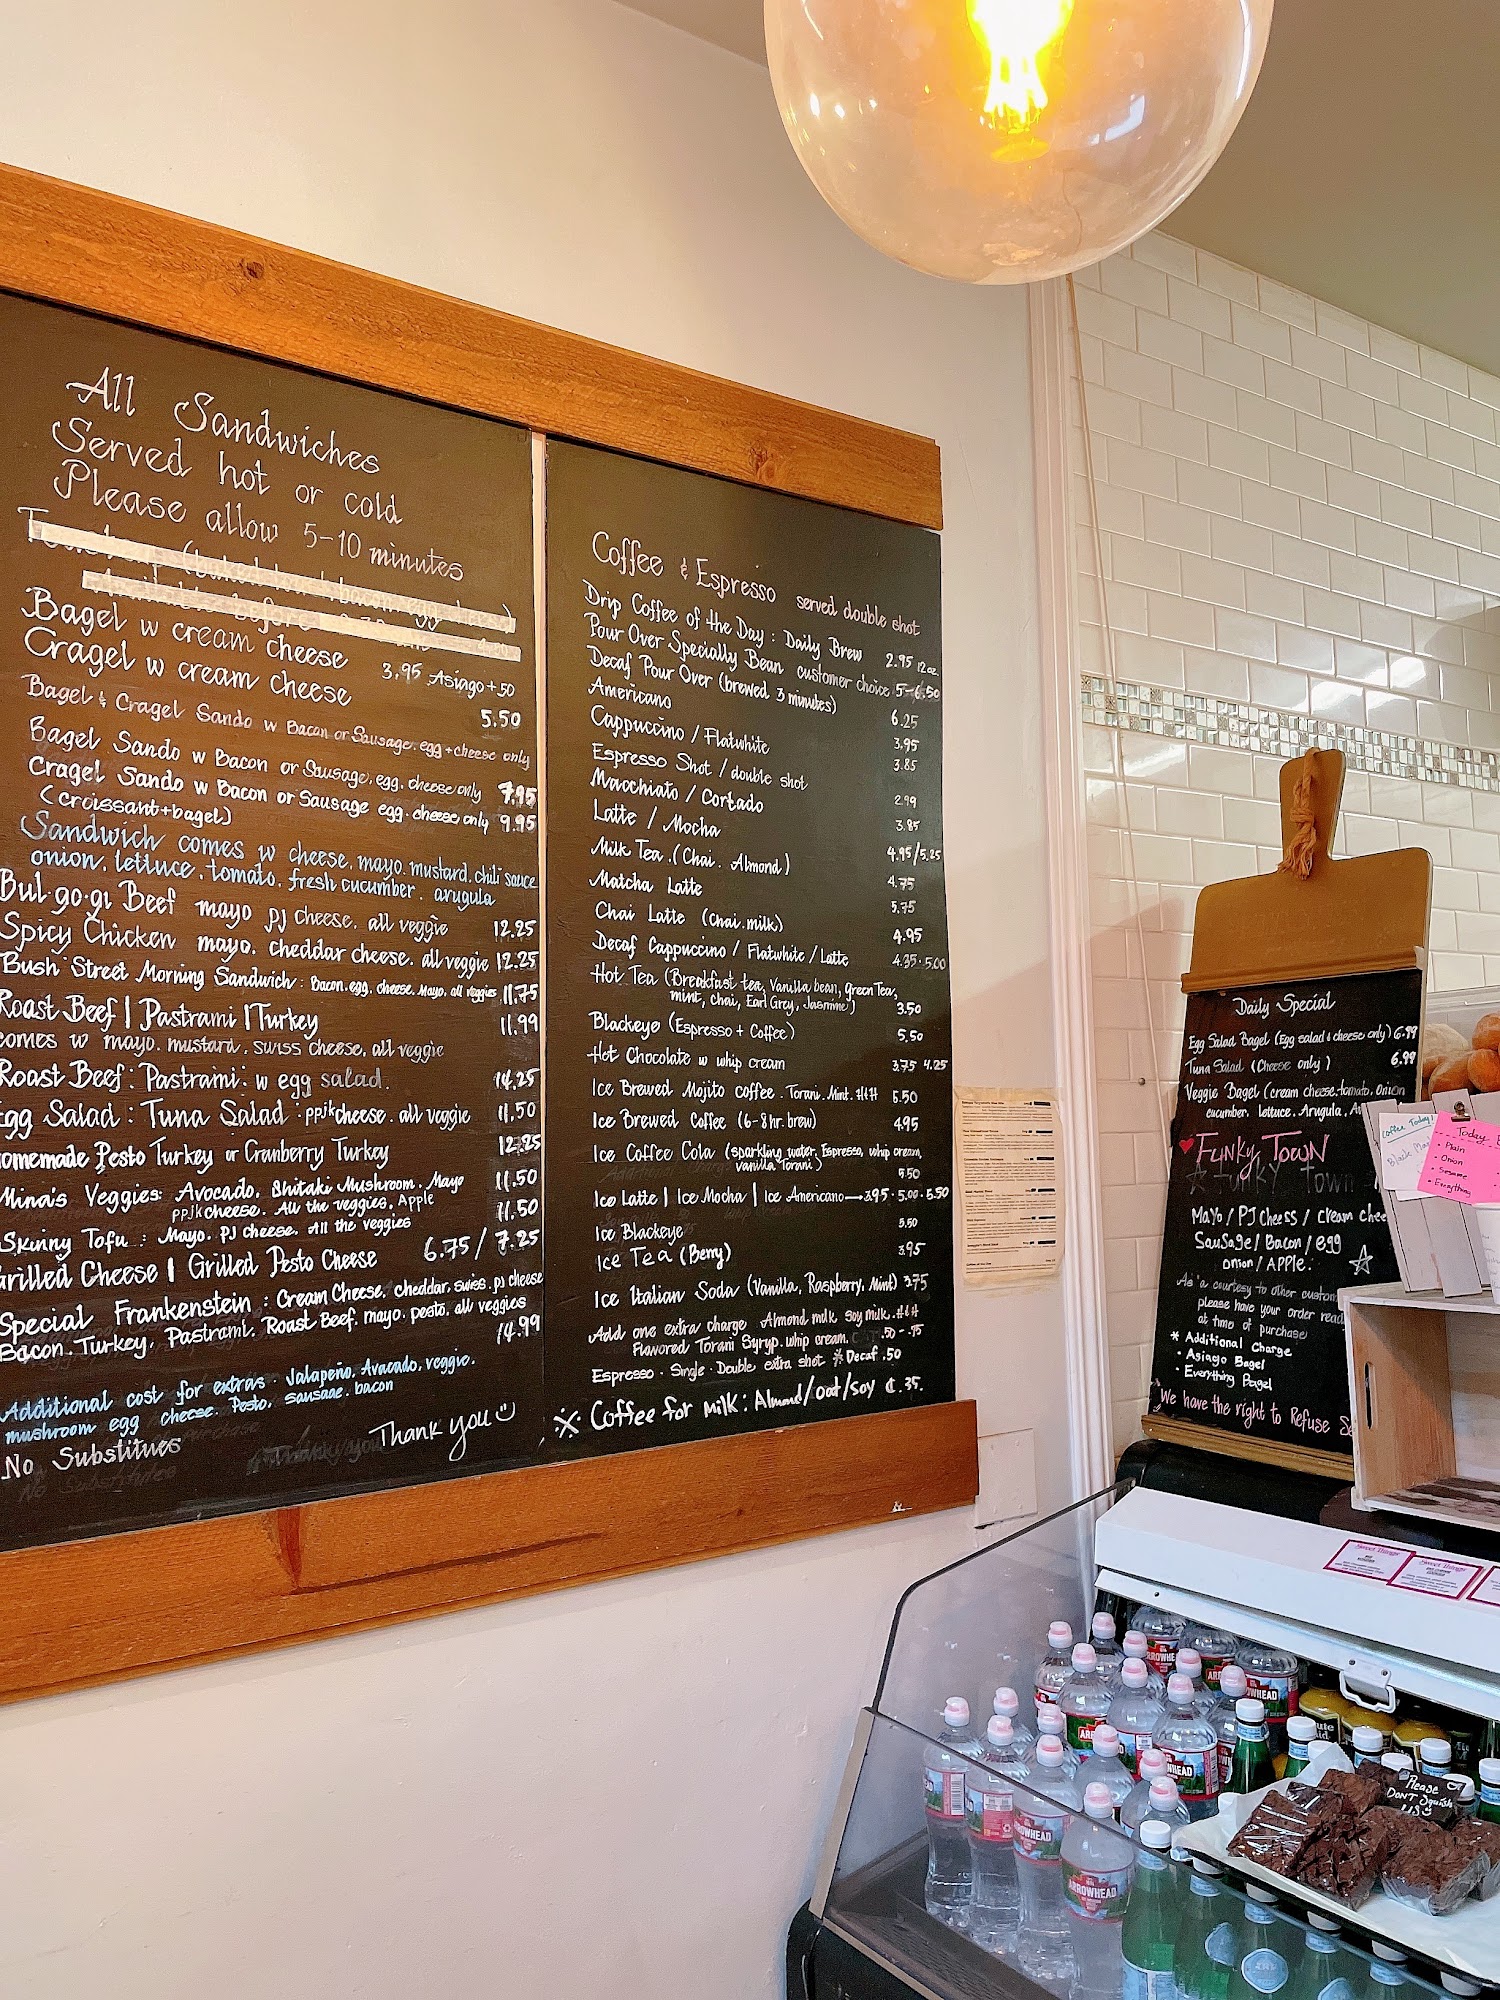 All Sandwiches
Served hot or cold
Please allow 5-10 minutes
Bagel w cream cheese 3.95 Asiago+50
Cragel w cream cheese 5.50
Bagel & Cragel Sando w Bacon or Sausage. egg + cheese only
Bagel Sando w Bacon or Sausage. egg. cheese only 7.95
Cragel Sando w Bacon or Sausage egg. cheese only 9.95
(croissant+bagel)
Sandwich comes w cheese. mayo. mustard. chili sauce
onion. lettuce. tomato. fresh cucumber. arugula
Bul·go·gi Beef mayo pj cheese. all veggie 12.25
Spicy Chicken mayo. cheddar cheese. all veggie 12.25
Bush Street Morning Sandwich: Bacon. egg. cheese. Mayo. all veggies 11.75
Roast Beef | Pastrami | Turkey 11.99
comes w mayo. mustard. swiss cheese, all veggie
Roast Beef: Pastrami: w egg salad. 14.25
Egg Salad: Tuna Salad: ppjkcheese. all veggie 11.50
omemade Pesto Turkey or Cranberry Turkey 12.25
Mina's Veggies: Avocado. Shitaki Mushroom. Mayo 11.50
ppjkcheese. All the veggies. Apple
Skinny Tofu: Mayo. PJ cheese. All the veggies 11.50
rilled Cheese | Grilled Pesto Cheese 6.75 / 7.25
Special Frankenstein: Cream Cheese, cheddar, swiss. pj cheese
Bacon. Turkey. Pastrami. Roast Beef. mayo. pesto. all veggies 14.99
Additional cost for extras. Jalapeño. Avacado. veggie.
mushroom egg cheese. Pesto. sausage. bacon
No Substitues
Thank you
Coffee & Espresso served double shot
Drip Coffee of the Day: Daily Brew 2.95 12oz
Pour Over Specially Bean customer choice 5-6.50
Decaf Pour Over (brewed 3 minutes) 6.25
Americano 3.95
Cappuccino / Flatwhite 3.85
Espresso Shot / double shot 2.99
Macchiato / Cortado 3.85
Latte / Mocha 4.95/5.25
Milk Tea. (Chai. Almond) 4.75
Matcha Latte 5.75
Chai Latte (Chai. milk) 4.95
Decaf Cappuccino / Flatwhite / Latte 4.35 · 5.00
Hot Tea (Breakfast tea, Vanilla bean, green Tea,
mint, chai, Earl Grey, Jasmine) 3.50
Blackeye (Espresso + Coffee) 5.50
Hot Chocolate w whip cream 3.75 4.25
Ice Brewed Mojito coffee. Torani. Mint. H&H 5.50
Ice Brewed Coffee (6-8hr. brew) 4.95
Ice Coffee Cola (sparkling water, Espresso, whip cream,
vanilla Torani) 5.50
Ice Latte | Ice Mocha | Ice Americano — 3.95 · 5.00 · 5.50
Ice Blackeye 5.50
Ice Tea (Berry) 3.95
Ice Italian Soda (Vanilla, Raspberry, Mint) 3.75
Add one extra charge Almond milk soy milk. H&H
Flavored Torani Syryp. whip cream. .50-.75
Espresso · Single · Double extra shot Decaf .50
※ Coffee for milk: Almond/oat/soy ₵.35.
Daily Special
Egg Salad Bagel (Egg salad & cheese only) 6.99
Tuna Salad (Cheese only) 6.99
Veggie Bagel (cream cheese. tomato. onion
cucumber. lettuce. Arugula. Av
♥ Funky Town
Mayo / PJ Cheess / cream chee
Sausage / Bacon / egg
onion / APPle.
As a courtesy to other custom
please have your order read
at time of purchase
* Additional Charge
• Asiago Bagel
• Everything Bagel
We have the right to Refuse Se
Coffee Today!
Black Ma
Today
• Plain
• Onion
• Sesame
• Everything
Sweet Things
Sweet Things
ARROWHEAD
ARROWHEAD
ARROWHEAD
ARROWHEAD
Please
DON'T Squish
US